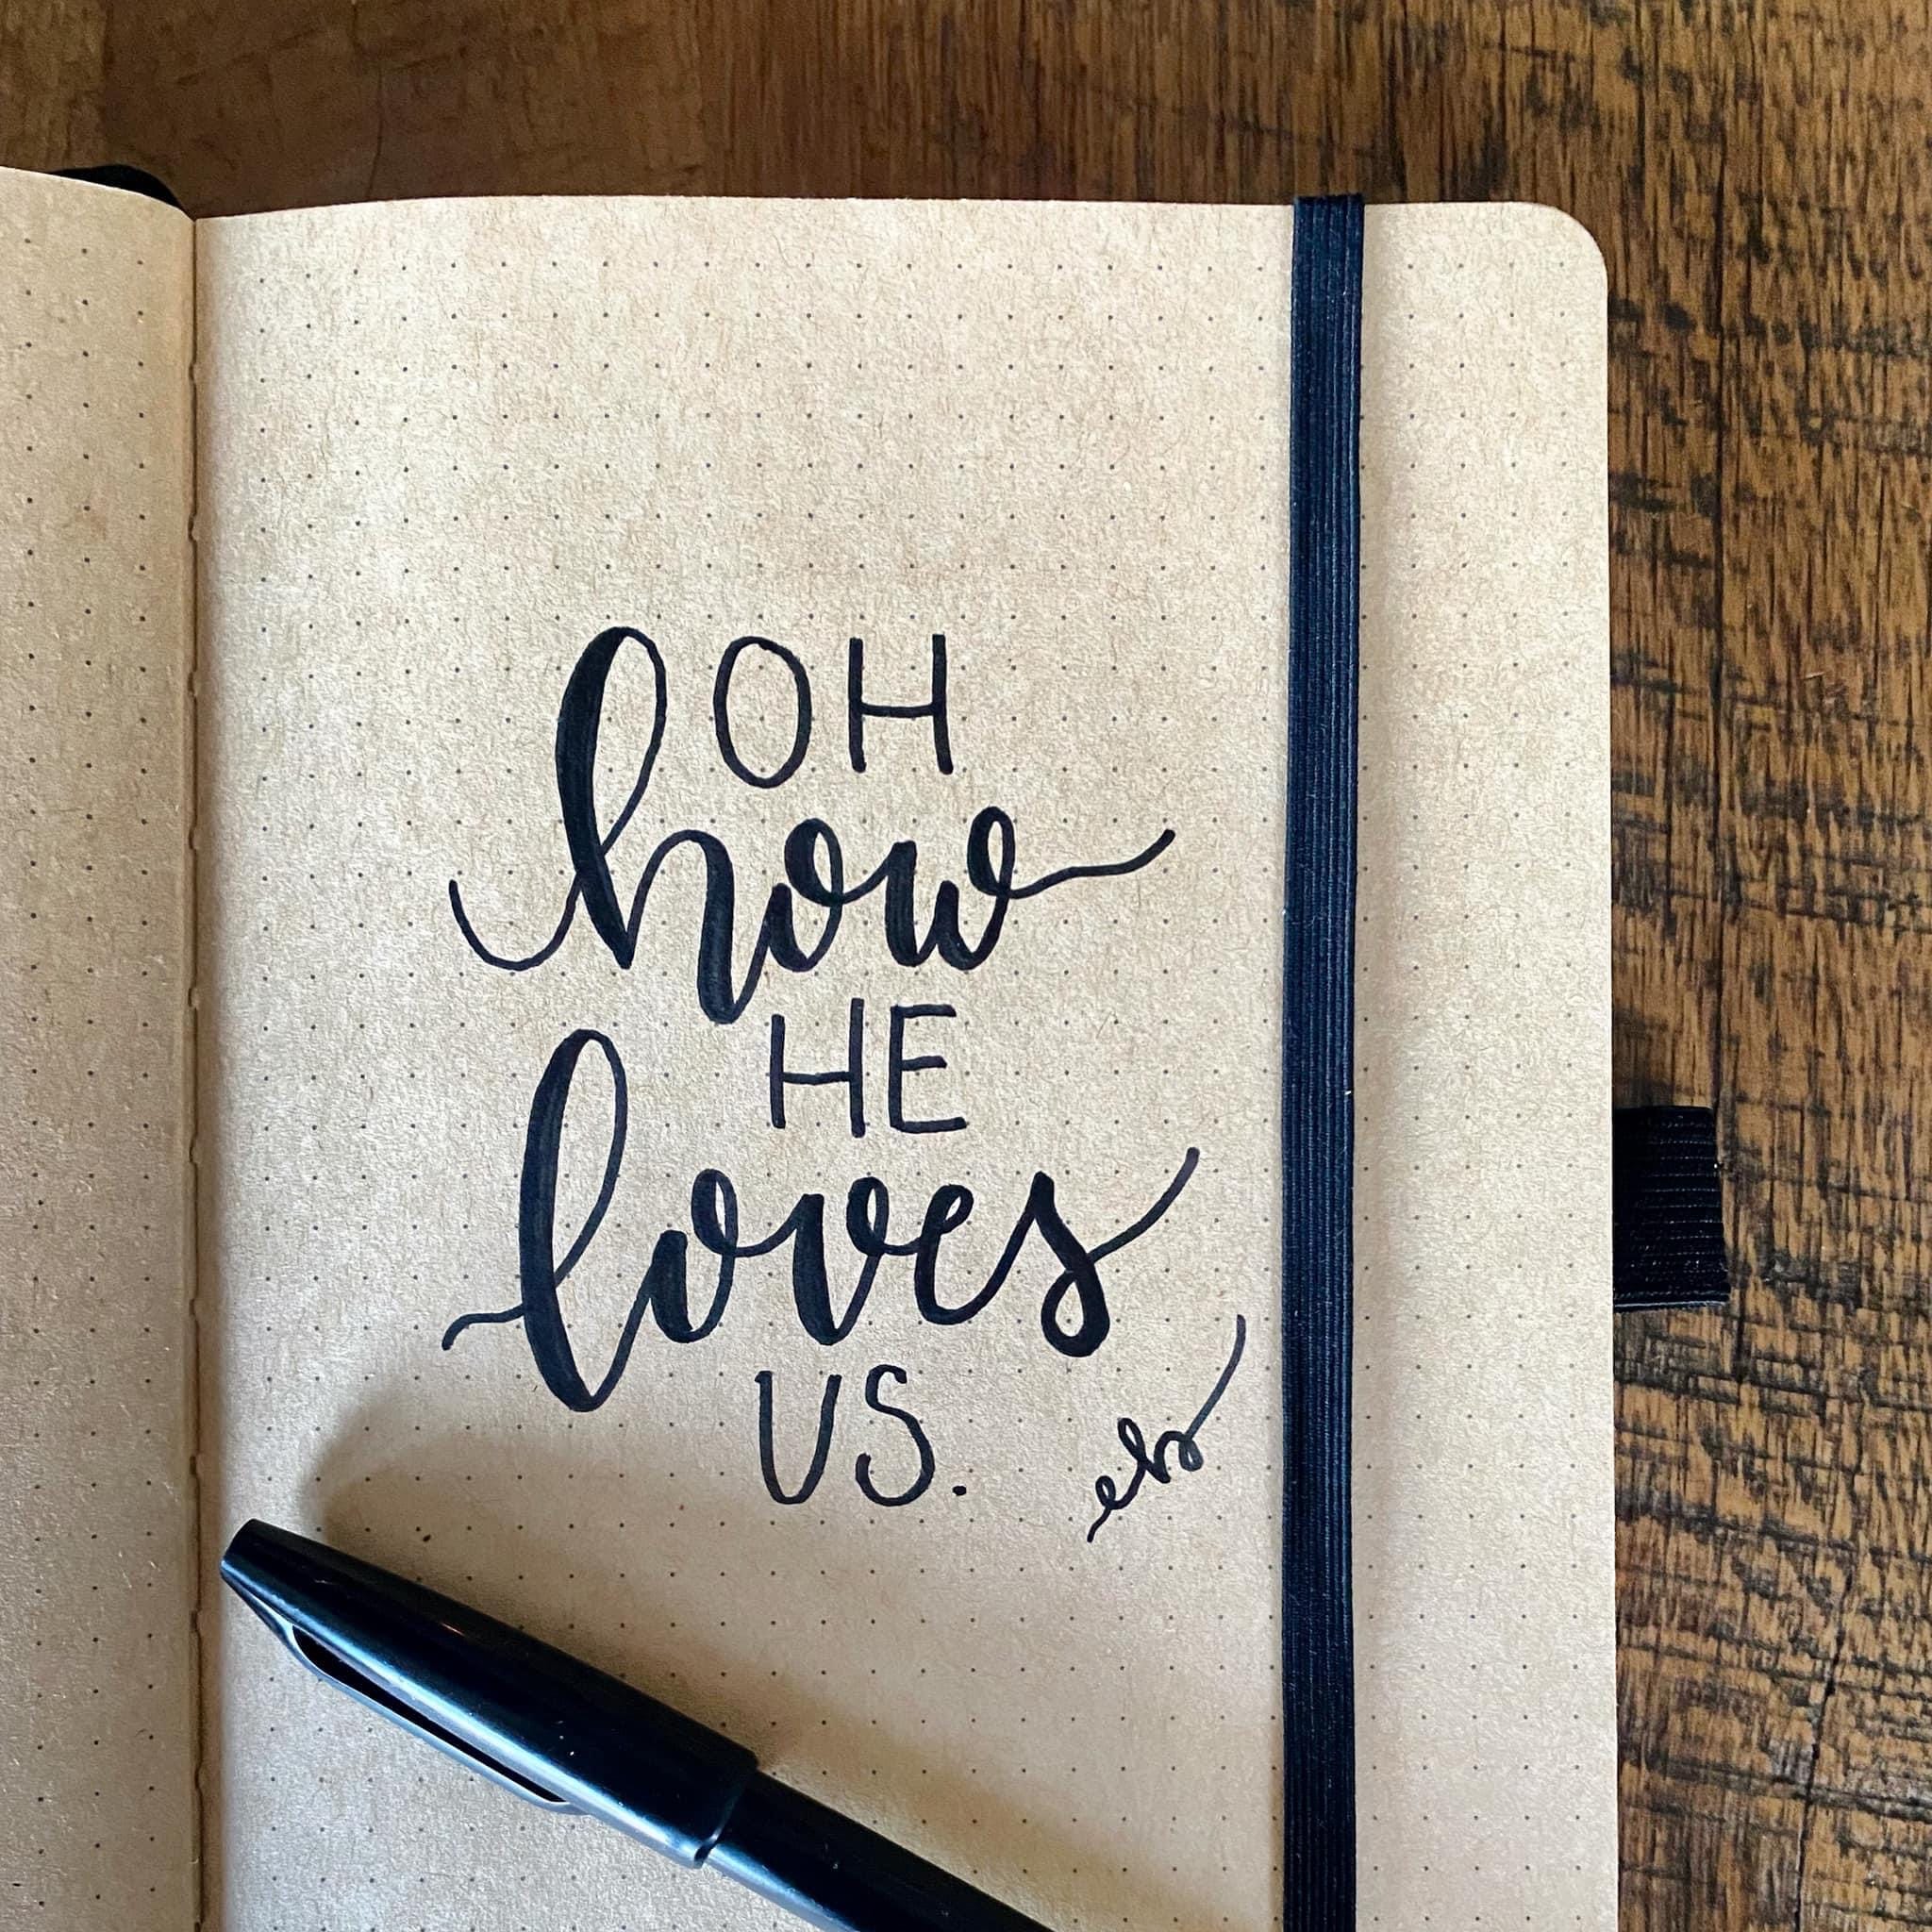 OH
how
HE
loves
US.